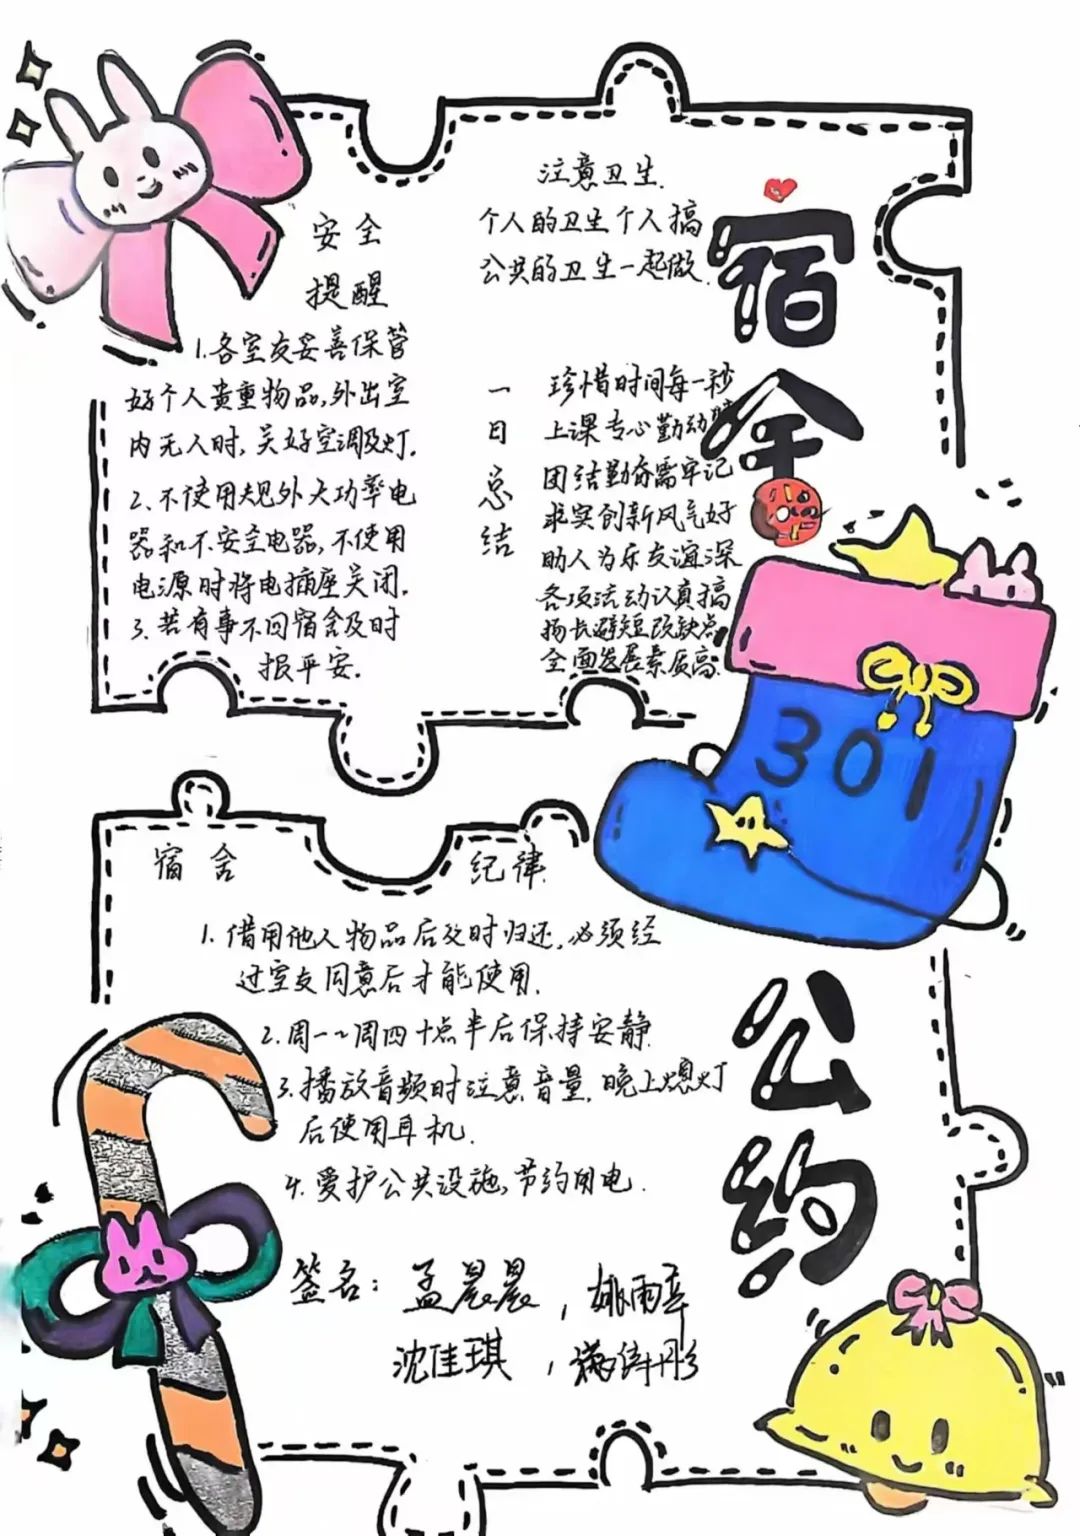 宿舍公约
301
安全
提醒
1.各室友妥善保管
好个人贵重物品,外出室
内无人时,关好空调及灯.
2.不使用规外大功率电
器和不安全电器,不使用
电源时将电插座关闭.
3.若有事不回宿舍及时
报平安.
注意卫生.
个人的卫生个人搞
公共的卫生一起做.
一日总结
珍惜时间每一秒
上课专心勤动
团结勤奋需牢记
求实创新风气好
助人为乐友谊深
各项活动认真搞
扬长避短改缺点
全面发展素质高.
宿舍 纪律
1.借用他人物品后及时归还,必须经
过室友同意后才能使用.
2.周一~周四十点半后保持安静.
3.播放音频时注意音量,晚上熄灯
后使用耳机.
4.爱护公共设施,节约用电.
签名:孟晨晨,姚雨
沈佳琪,